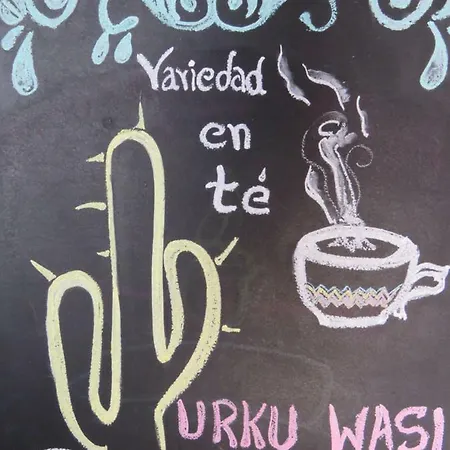 Variedad
en
té
URKU WASI